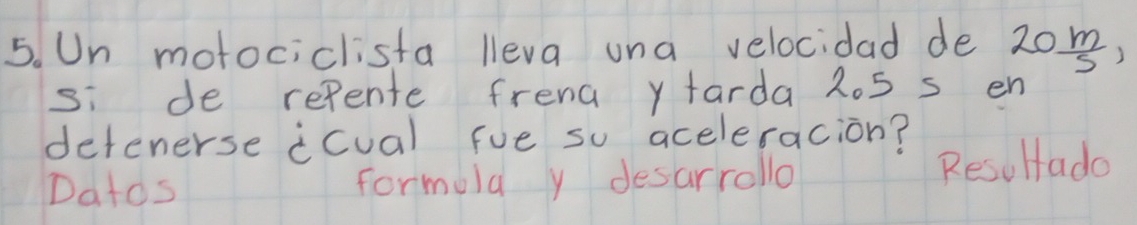 5. Un motociclista lleva una velocidad de 20 m/s,
si de rePente frena y tarda 2.5 s en
detenerse ¿Cual fue su aceleración?
Datos formula y desarrollo Resultado